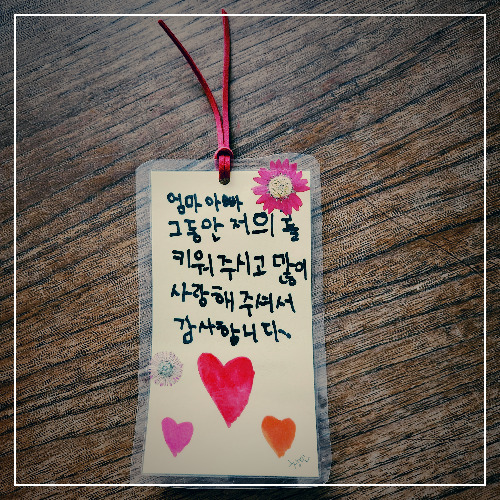 엄마 아빠
그동안 저의 둘
키워 주시고 많이
사랑해 주셔서
감사합니다~